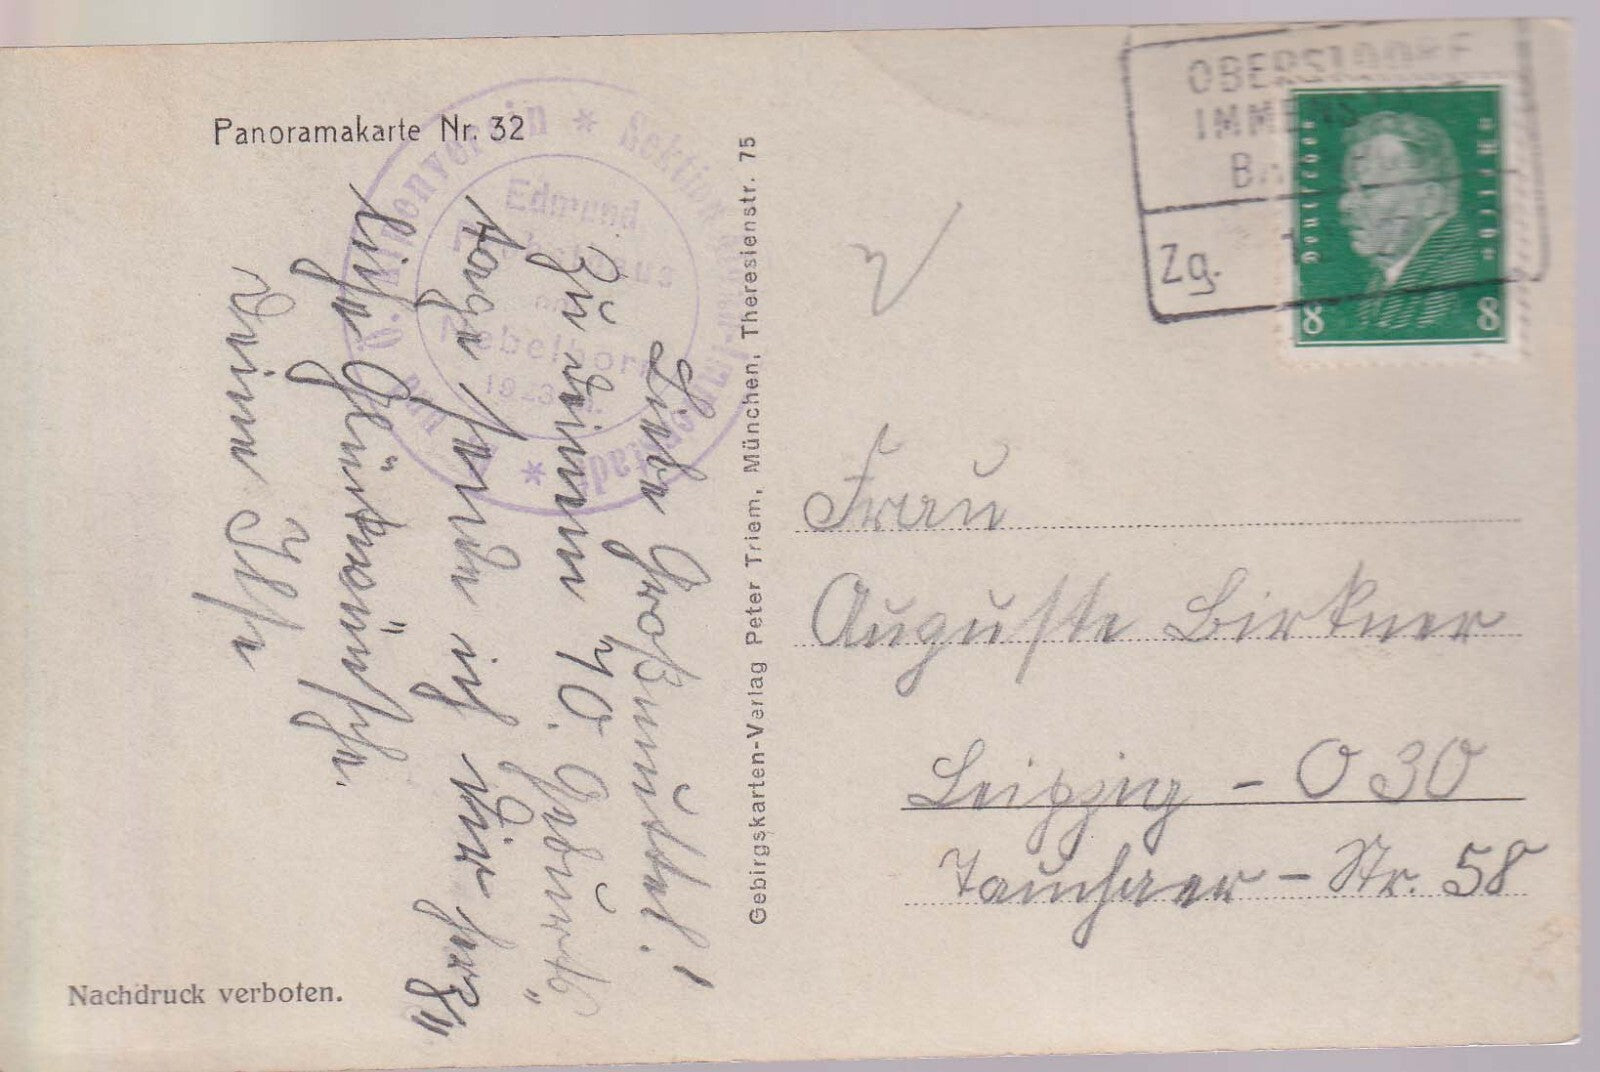 Panoramakarte Nr. 32
D. u. Ö. Alpenverein * Sektion Allgäu-Immenstadt *
Edmund
Probsthaus
am
Nebelhorn
Liebe Großmuttel!
Zu Deinem 70. Geburts"
tage sende ich Dir herz"
liche Glückwünsche.
Deine Ilse
Nachdruck verboten.
Gebirgskarten-Verlag Peter Triem, München, Theresienstr. 75
OBERSTDORF
IMMENST
BA
Zg.
Deutsches Reich
8 8
Frau
Auguste Birkner
Leipzig - O 30
Tauchaer - Str. 58